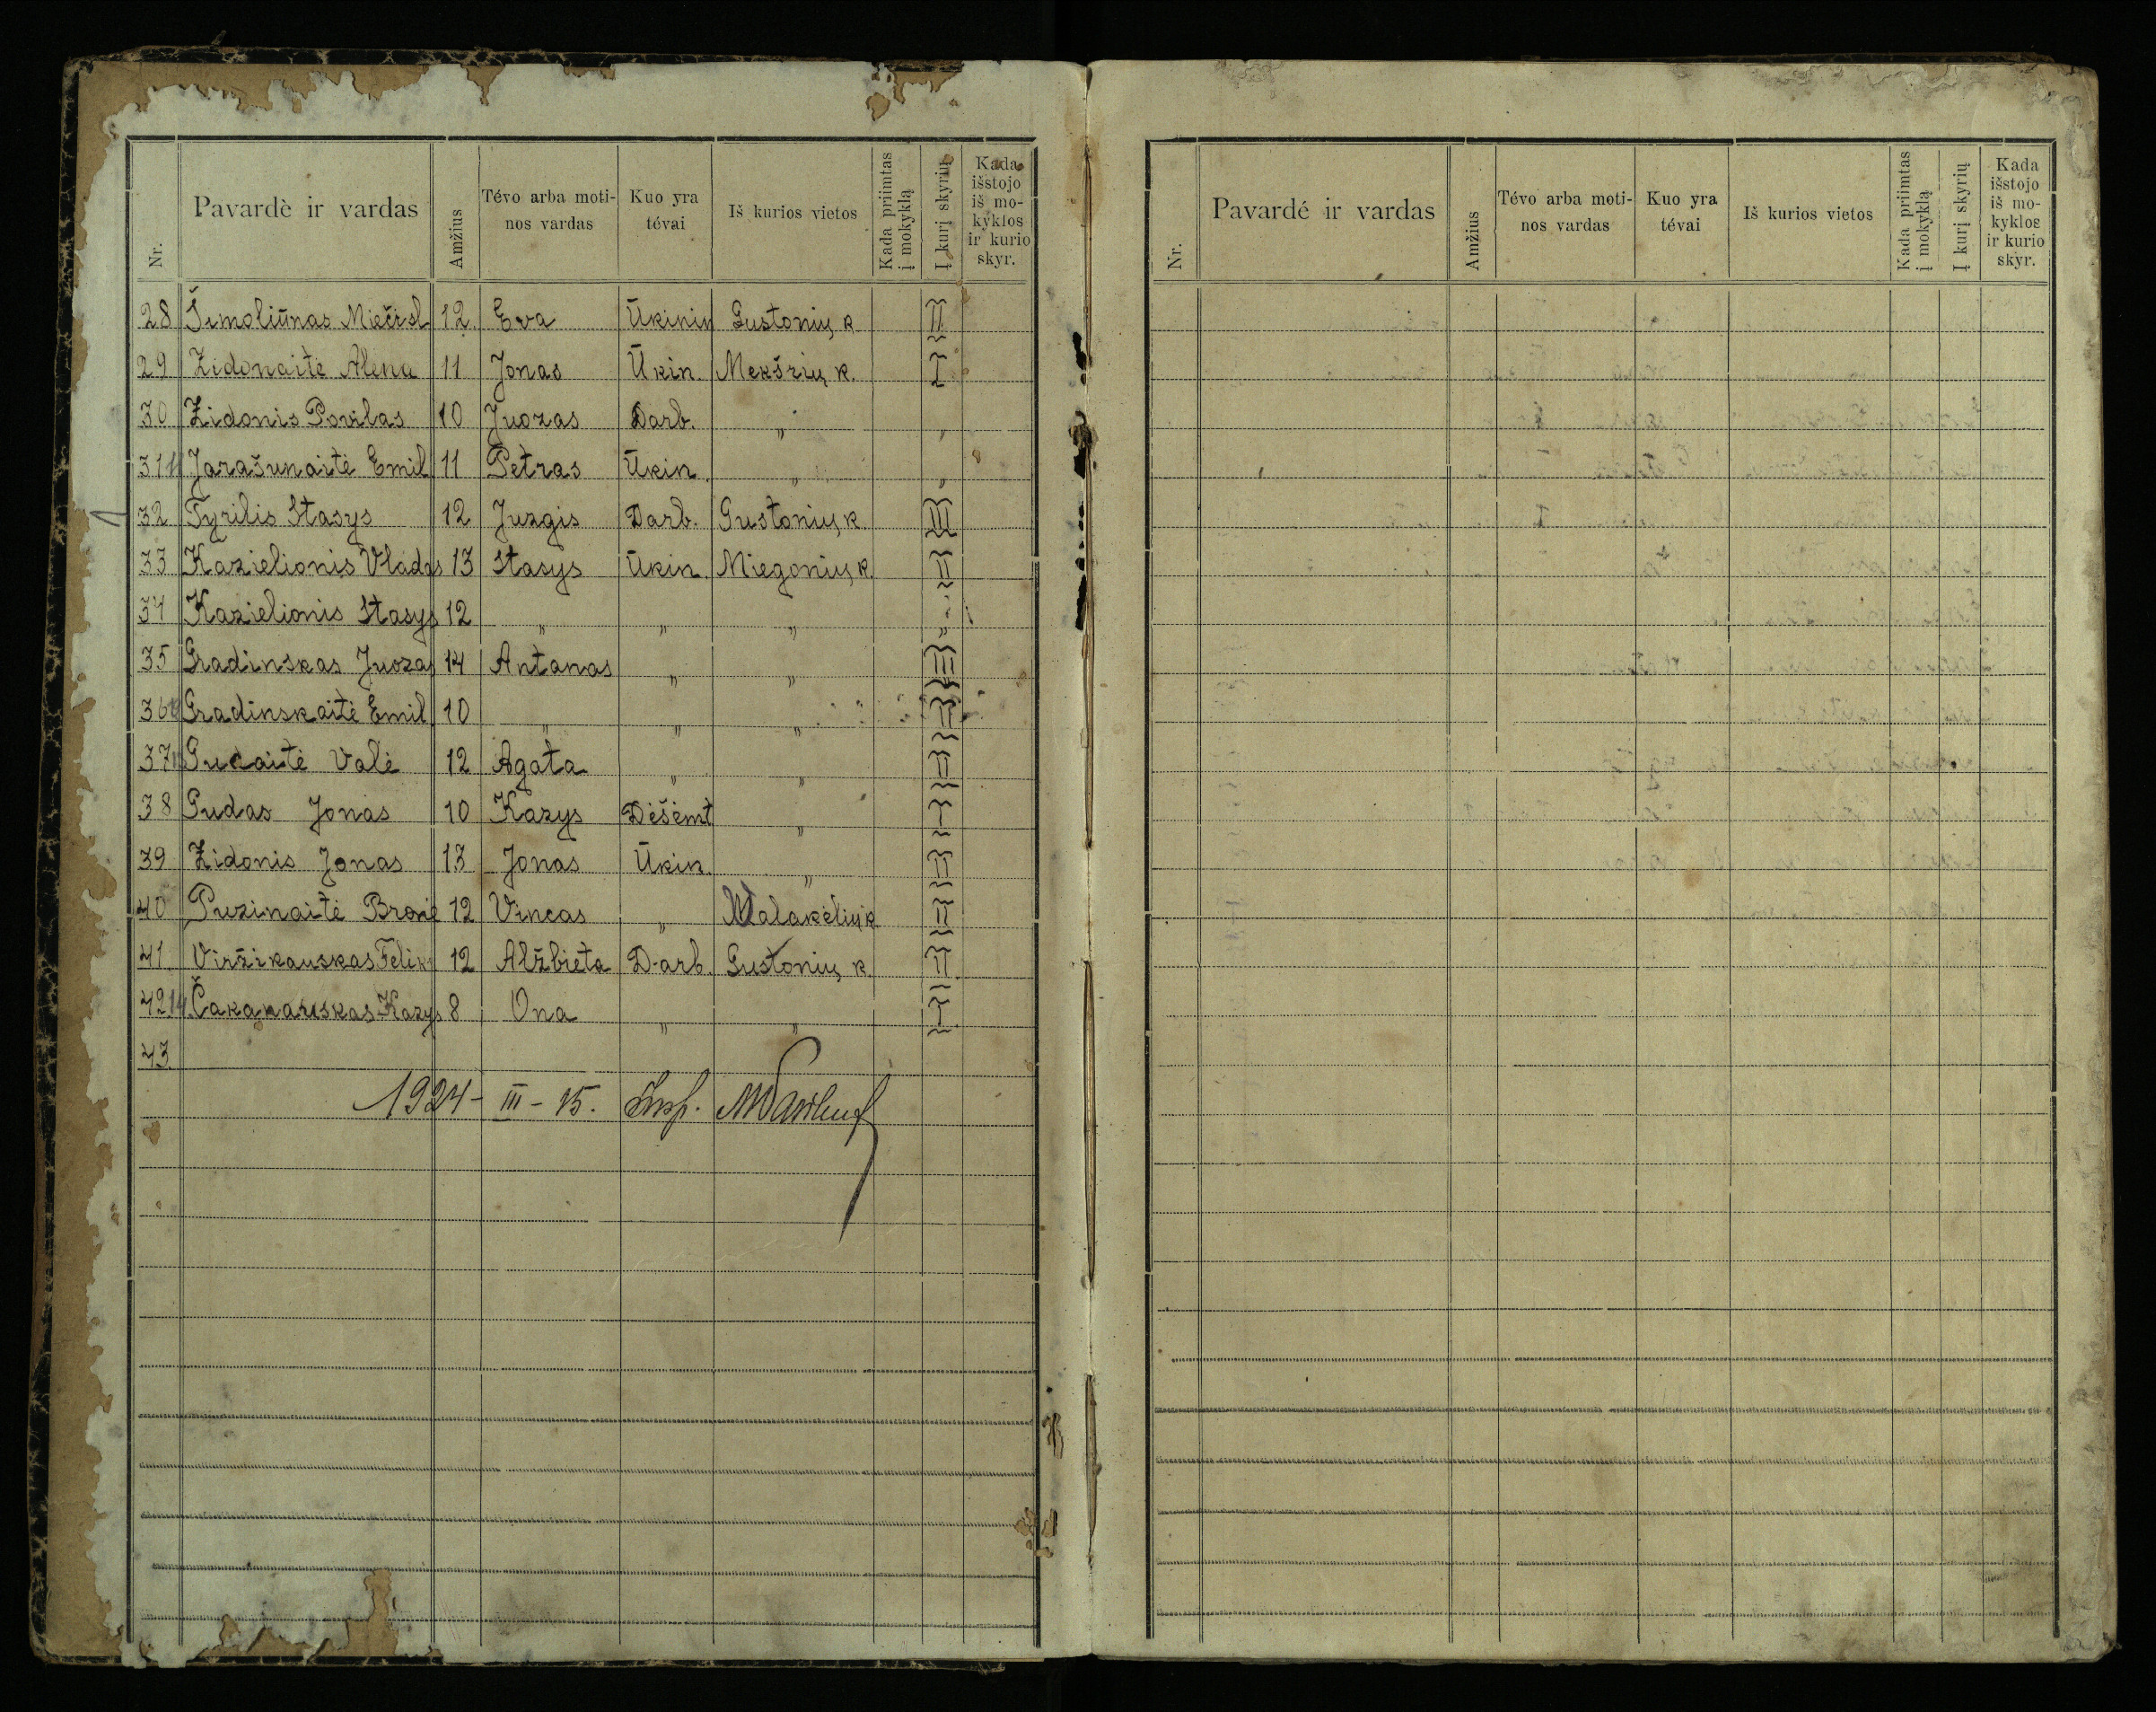 Nr. Pavardė ir vardas Amžius Tėvo arba motinos vardas Kuo yra tėvai Iš kurios vietos Kada priimtas į mokyklą Į kurį skyrių Kada išstojo iš mokyklos ir kurio skyr.
28 Šimoliūnas Miečisl 12. Eva Ūkinin Gustonių k II
29 Židonaitė Alena 11 Jonas Ūkin. Mekšrių k. I
30 Židonis Povilas 10 Juozas Darb. " "
31 11 Jarašunaitė Emil 11 Petras Ūkin. " "
32 Tyrilis Stasys 12 Juzgis Darb. Gustonių k. III
33 Kazielionis Vladas 13 Stasys Ūkin. Miegonių k. II
34 Kazielionis Stasys 12 " " " "
35 Gradinskas Juozas 14 Antanas " " III
36 Gradinskaitė Emil. 10 " " " II
37 Gudaitė Valė 12 Agota " " II
38 Gudas Jonas 10 Kazys Dėšėmt " I
39 Židonis Jonas 13 Jonas Ūkin. " II
40 Puzinaitė Bronė 12 Vincas " Malakėlių k II
41. Viržikauskas Felik 12 Alžbieta Darb. Gustonių k. II
42 14. Čakanauskas Kazys 8 Ona " " I
43.
1924 - III - 15. Insp.
Nr. Pavardė ir vardas Amžius Tėvo arba motinos vardas Kuo yra tėvai Iš kurios vietos Kada priimtas į mokyklą Į kurį skyrių Kada išstojo iš mokyklos ir kurio skyr.